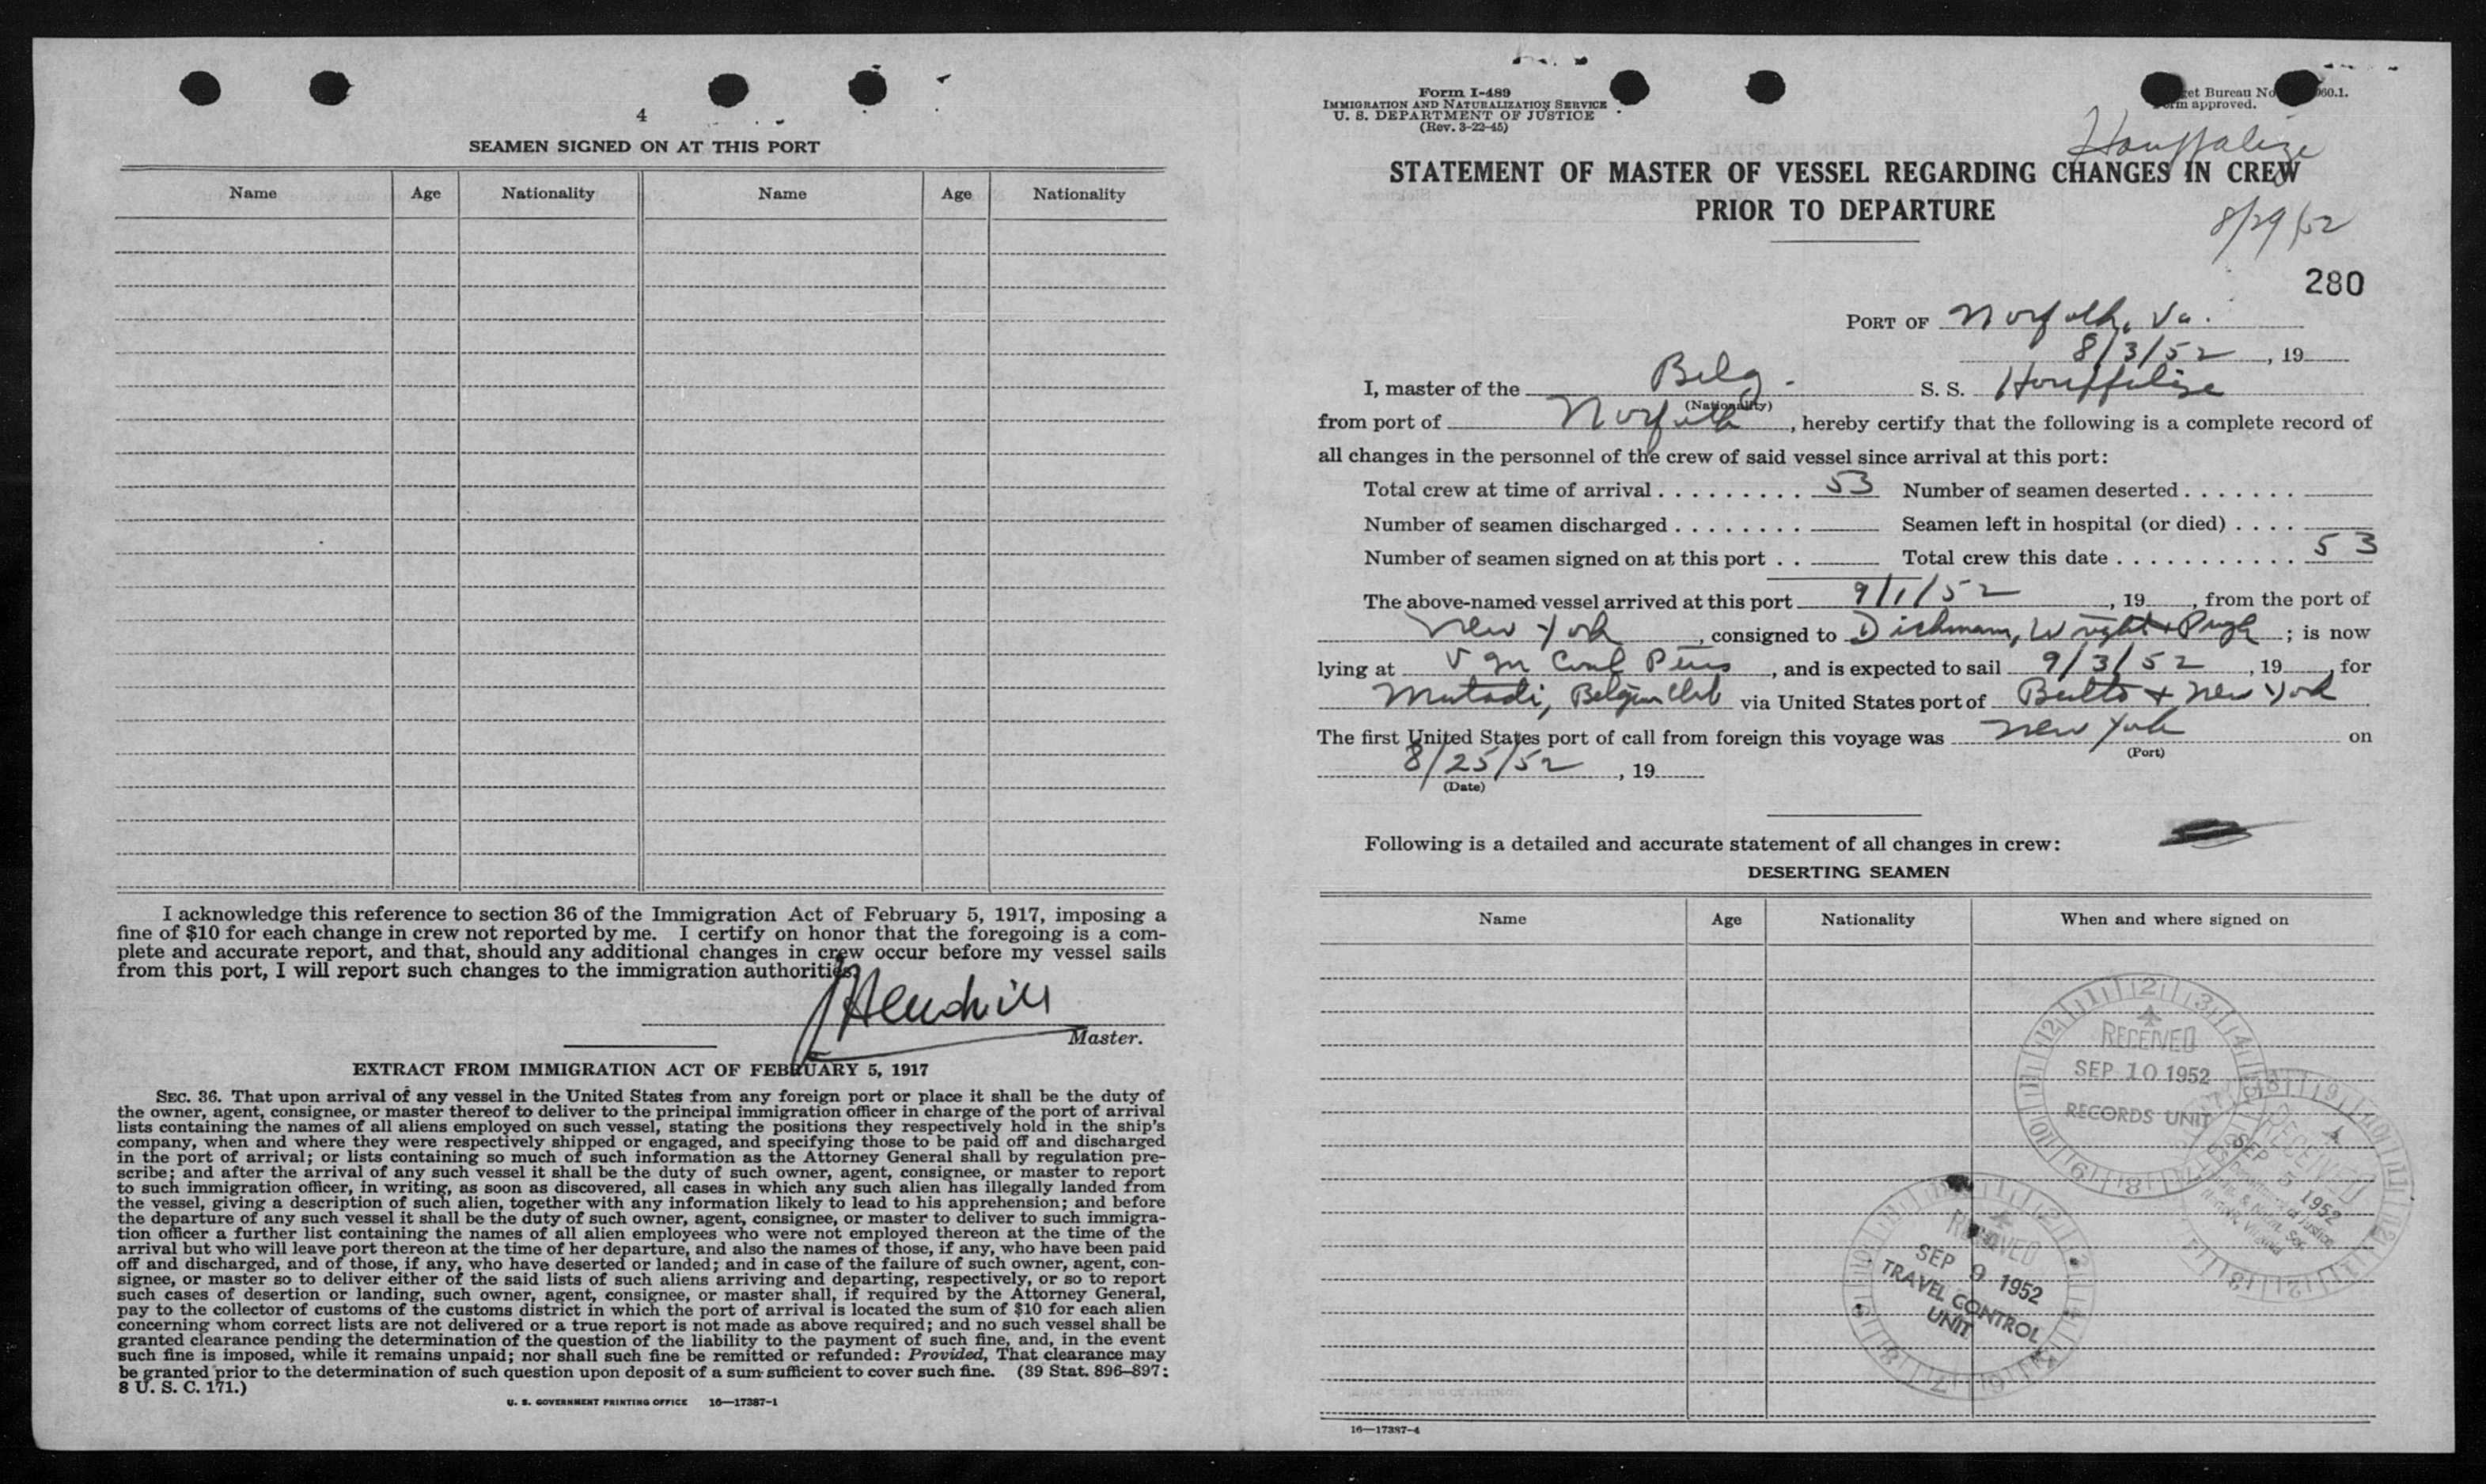 4
SEAMEN SIGNED ON AT THIS PORT
Name Age Nationality Name Age Nationality
I acknowledge this reference to section 36 of the Immigration Act of February 5, 1917, imposing a
fine of $10 for each change in crew not reported by me. I certify on honor that the foregoing is a com-
plete and accurate report, and that, should any additional changes in crew occur before my vessel sails
from this port, I will report such changes to the immigration authorities.
Master.
EXTRACT FROM IMMIGRATION ACT OF FEBRUARY 5, 1917
SEC. 36. That upon arrival of any vessel in the United States from any foreign port or place it shall be the duty of
the owner, agent, consignee, or master thereof to deliver to the principal immigration officer in charge of the port of arrival
lists containing the names of all aliens employed on such vessel, stating the positions they respectively hold in the ship's
company, when and where they were respectively shipped or engaged, and specifying those to be paid off and discharged
in the port of arrival; or lists containing so much of such information as the Attorney General shall by regulation pre-
scribe; and after the arrival of any such vessel it shall be the duty of such owner, agent, consignee, or master to report
to such immigration officer, in writing, as soon as discovered, all cases in which any such alien has illegally landed from
the vessel, giving a description of such alien, together with any information likely to lead to his apprehension; and before
the departure of any such vessel it shall be the duty of such owner, agent, consignee, or master to deliver to such immigra-
tion officer a further list containing the names of all alien employees who were not employed thereon at the time of the
arrival but who will leave port thereon at the time of her departure, and also the names of those, if any, who have been paid
off and discharged, and of those, if any, who have deserted or landed; and in case of the failure of such owner, agent, con-
signee, or master so to deliver either of the said lists of such aliens arriving and departing, respectively, or so to report
such cases of desertion or landing, such owner, agent, consignee, or master shall, if required by the Attorney General,
pay to the collector of customs of the customs district in which the port of arrival is located the sum of $10 for each alien
concerning whom correct lists are not delivered or a true report is not made as above required; and no such vessel shall be
granted clearance pending the determination of the question of the liability to the payment of such fine, and, in the event
such fine is imposed, while it remains unpaid; nor shall such fine be remitted or refunded: Provided, That clearance may
be granted prior to the determination of such question upon deposit of a sum sufficient to cover such fine. (39 Stat. 896–897;
8 U. S. C. 171.)
U. S. GOVERNMENT PRINTING OFFICE 16—17387-1
Form I-489
IMMIGRATION AND NATURALIZATION SERVICE
U. S. DEPARTMENT OF JUSTICE
(Rev. 3-22-45)
Bureau No. 60.1.
approved.
Houffalize
STATEMENT OF MASTER OF VESSEL REGARDING CHANGES IN CREW
PRIOR TO DEPARTURE
8/29/52
280
PORT OF Norfolk, Va.
8/3/52, 19
I, master of the Belg. S. S. Houffalize
(Nationality)
from port of Norfolk, hereby certify that the following is a complete record of
all changes in the personnel of the crew of said vessel since arrival at this port:
Total crew at time of arrival 53 Number of seamen deserted
Number of seamen discharged Seamen left in hospital (or died)
Number of seamen signed on at this port Total crew this date 53
The above-named vessel arrived at this port 9/1/52, 19, from the port of
New York, consigned to Dichmann, Wright + Pugh; is now
lying at Vgn Coal Piers, and is expected to sail 9/3/52, 19, for
Matadi, Belgian via United States port of Balto + New York
The first United States port of call from foreign this voyage was New York on
(Port)
8/25/52, 19
(Date)
Following is a detailed and accurate statement of all changes in crew:
DESERTING SEAMEN
Name Age Nationality When and where signed on
RECEIVED
SEP 10 1952
RECORDS UNIT
RECEIVED
SEP 5 1952
U.S. Department of Justice
Immig. & Nat. Ser.
Norfolk, Virginia
RECEIVED
SEP 9 1952
TRAVEL CONTROL
UNIT
16—17387-4